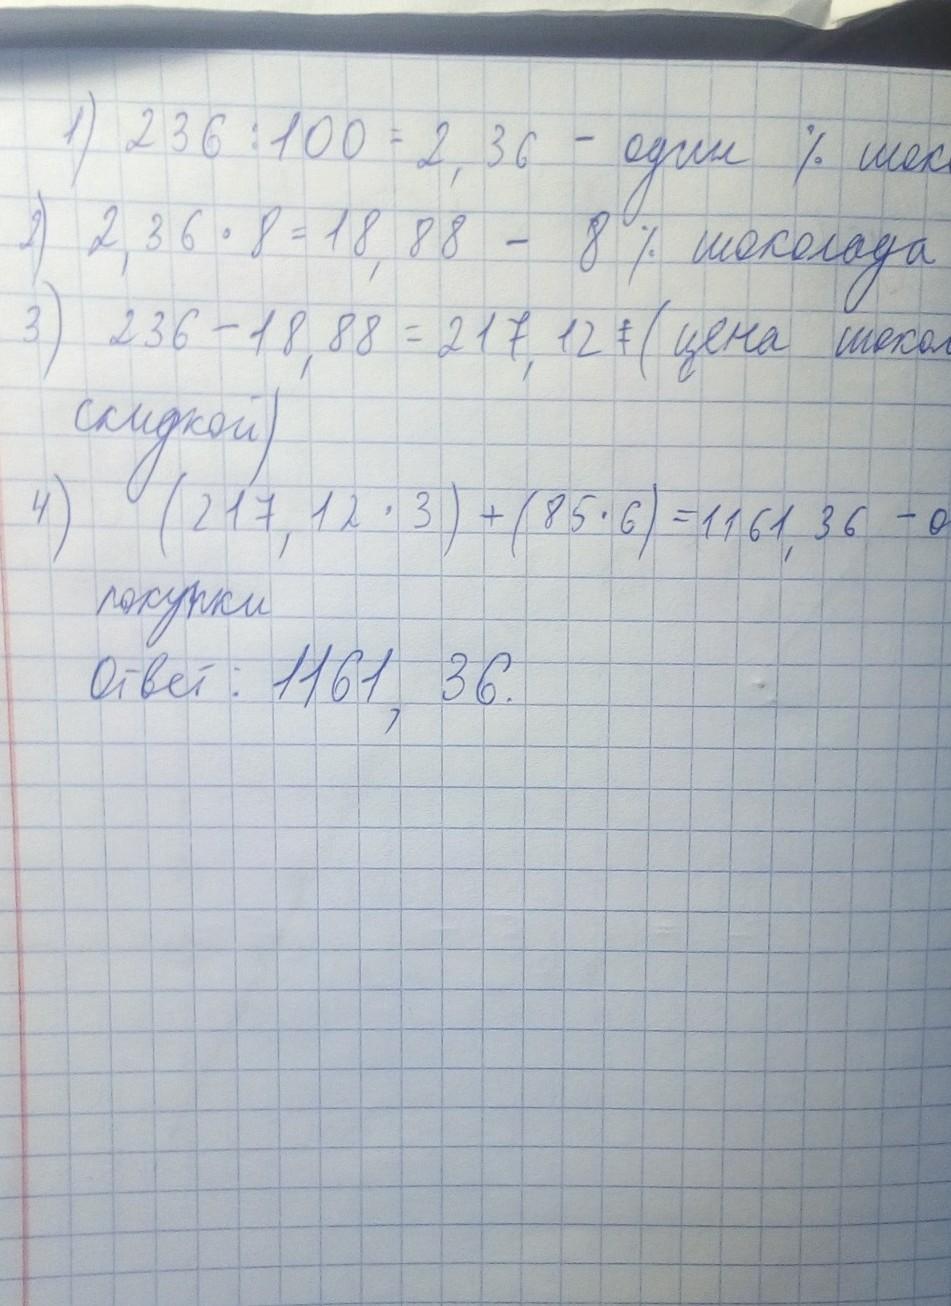 1) 236 : 100 = 2,36 - один % шок
2) 2,36 · 8 = 18,88 - 8 % шоколада
3) 236 - 18,88 = 217,12 - (цена шокол
скидкой)
4) (217,12 · 3) + (85 · 6) = 1161,36 - о
покупки
Ответ: 1161,36.